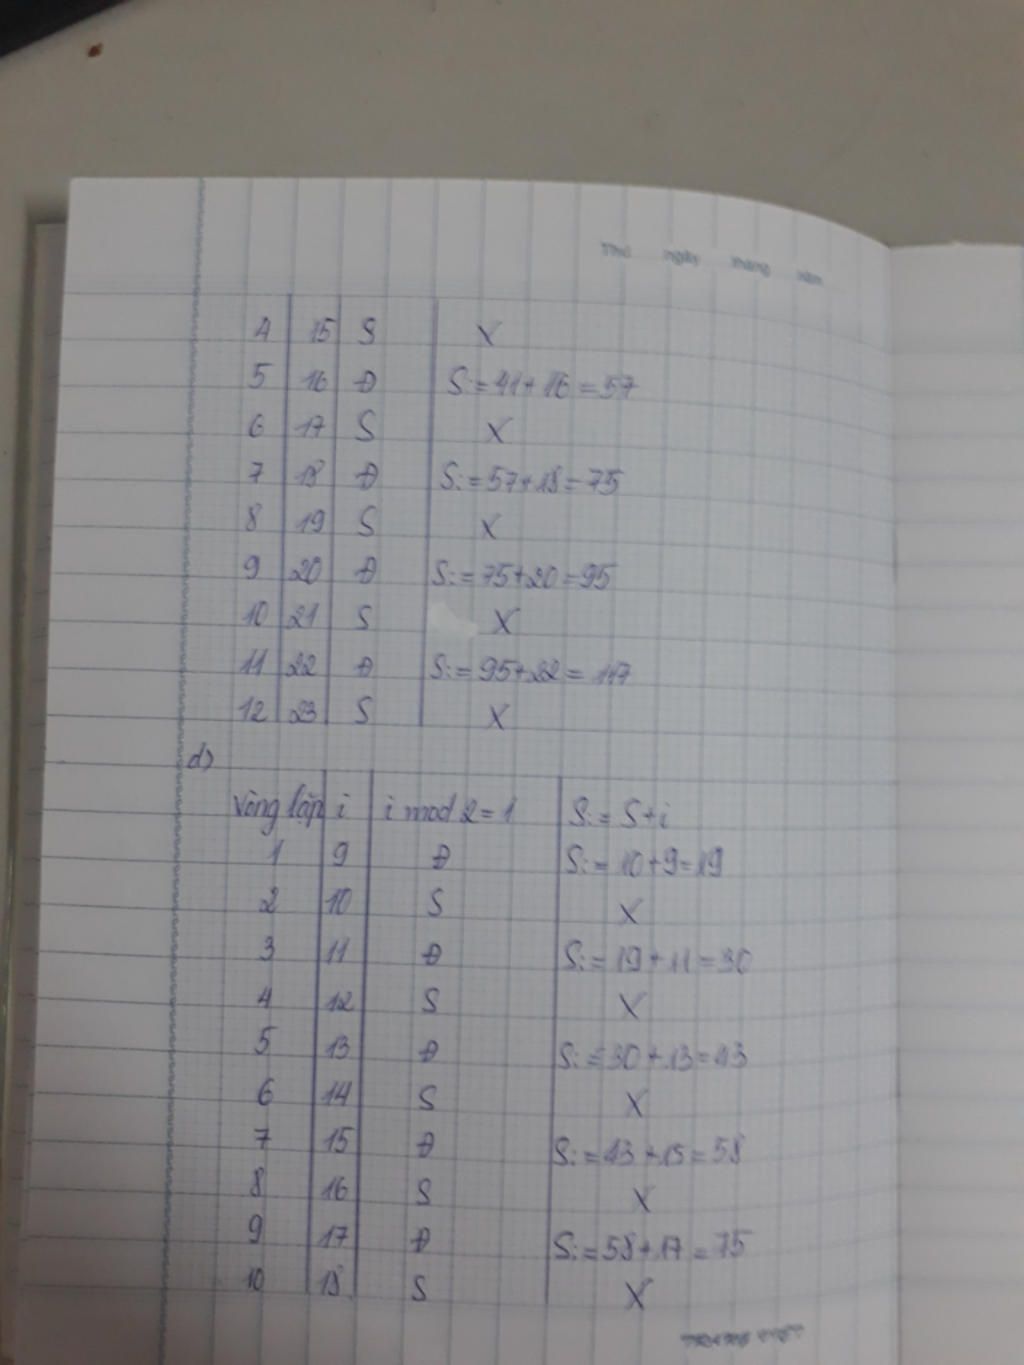 Thứ ngày tháng năm
4 15 S X
5 16 Đ S:=41+16=57
6 17 S X
7 18 Đ S:=57+18=75
8 19 S X
9 20 Đ S:=75+20=95
10 21 S X
11 22 Đ S:=95+22=117
12 23 S X
d)
Vòng lặp i i mod 2=1 S:=S+i
1 9 Đ S:=10+9=19
2 10 S X
3 11 Đ S:=19+11=30
4 12 S X
5 13 Đ S:=30+13=43
6 14 S X
7 15 Đ S:=43+15=58
8 16 S X
9 17 Đ S:=58+17=75
10 18 S X